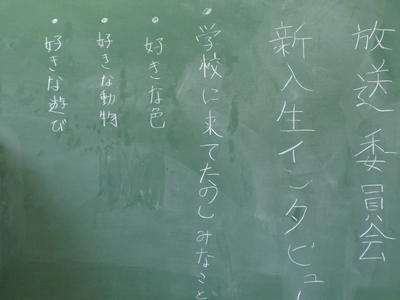 放送委員会
新入生インタビュ
・学校に来てたのしみなこと
・好きな色
・好きな動物
・好きな遊び